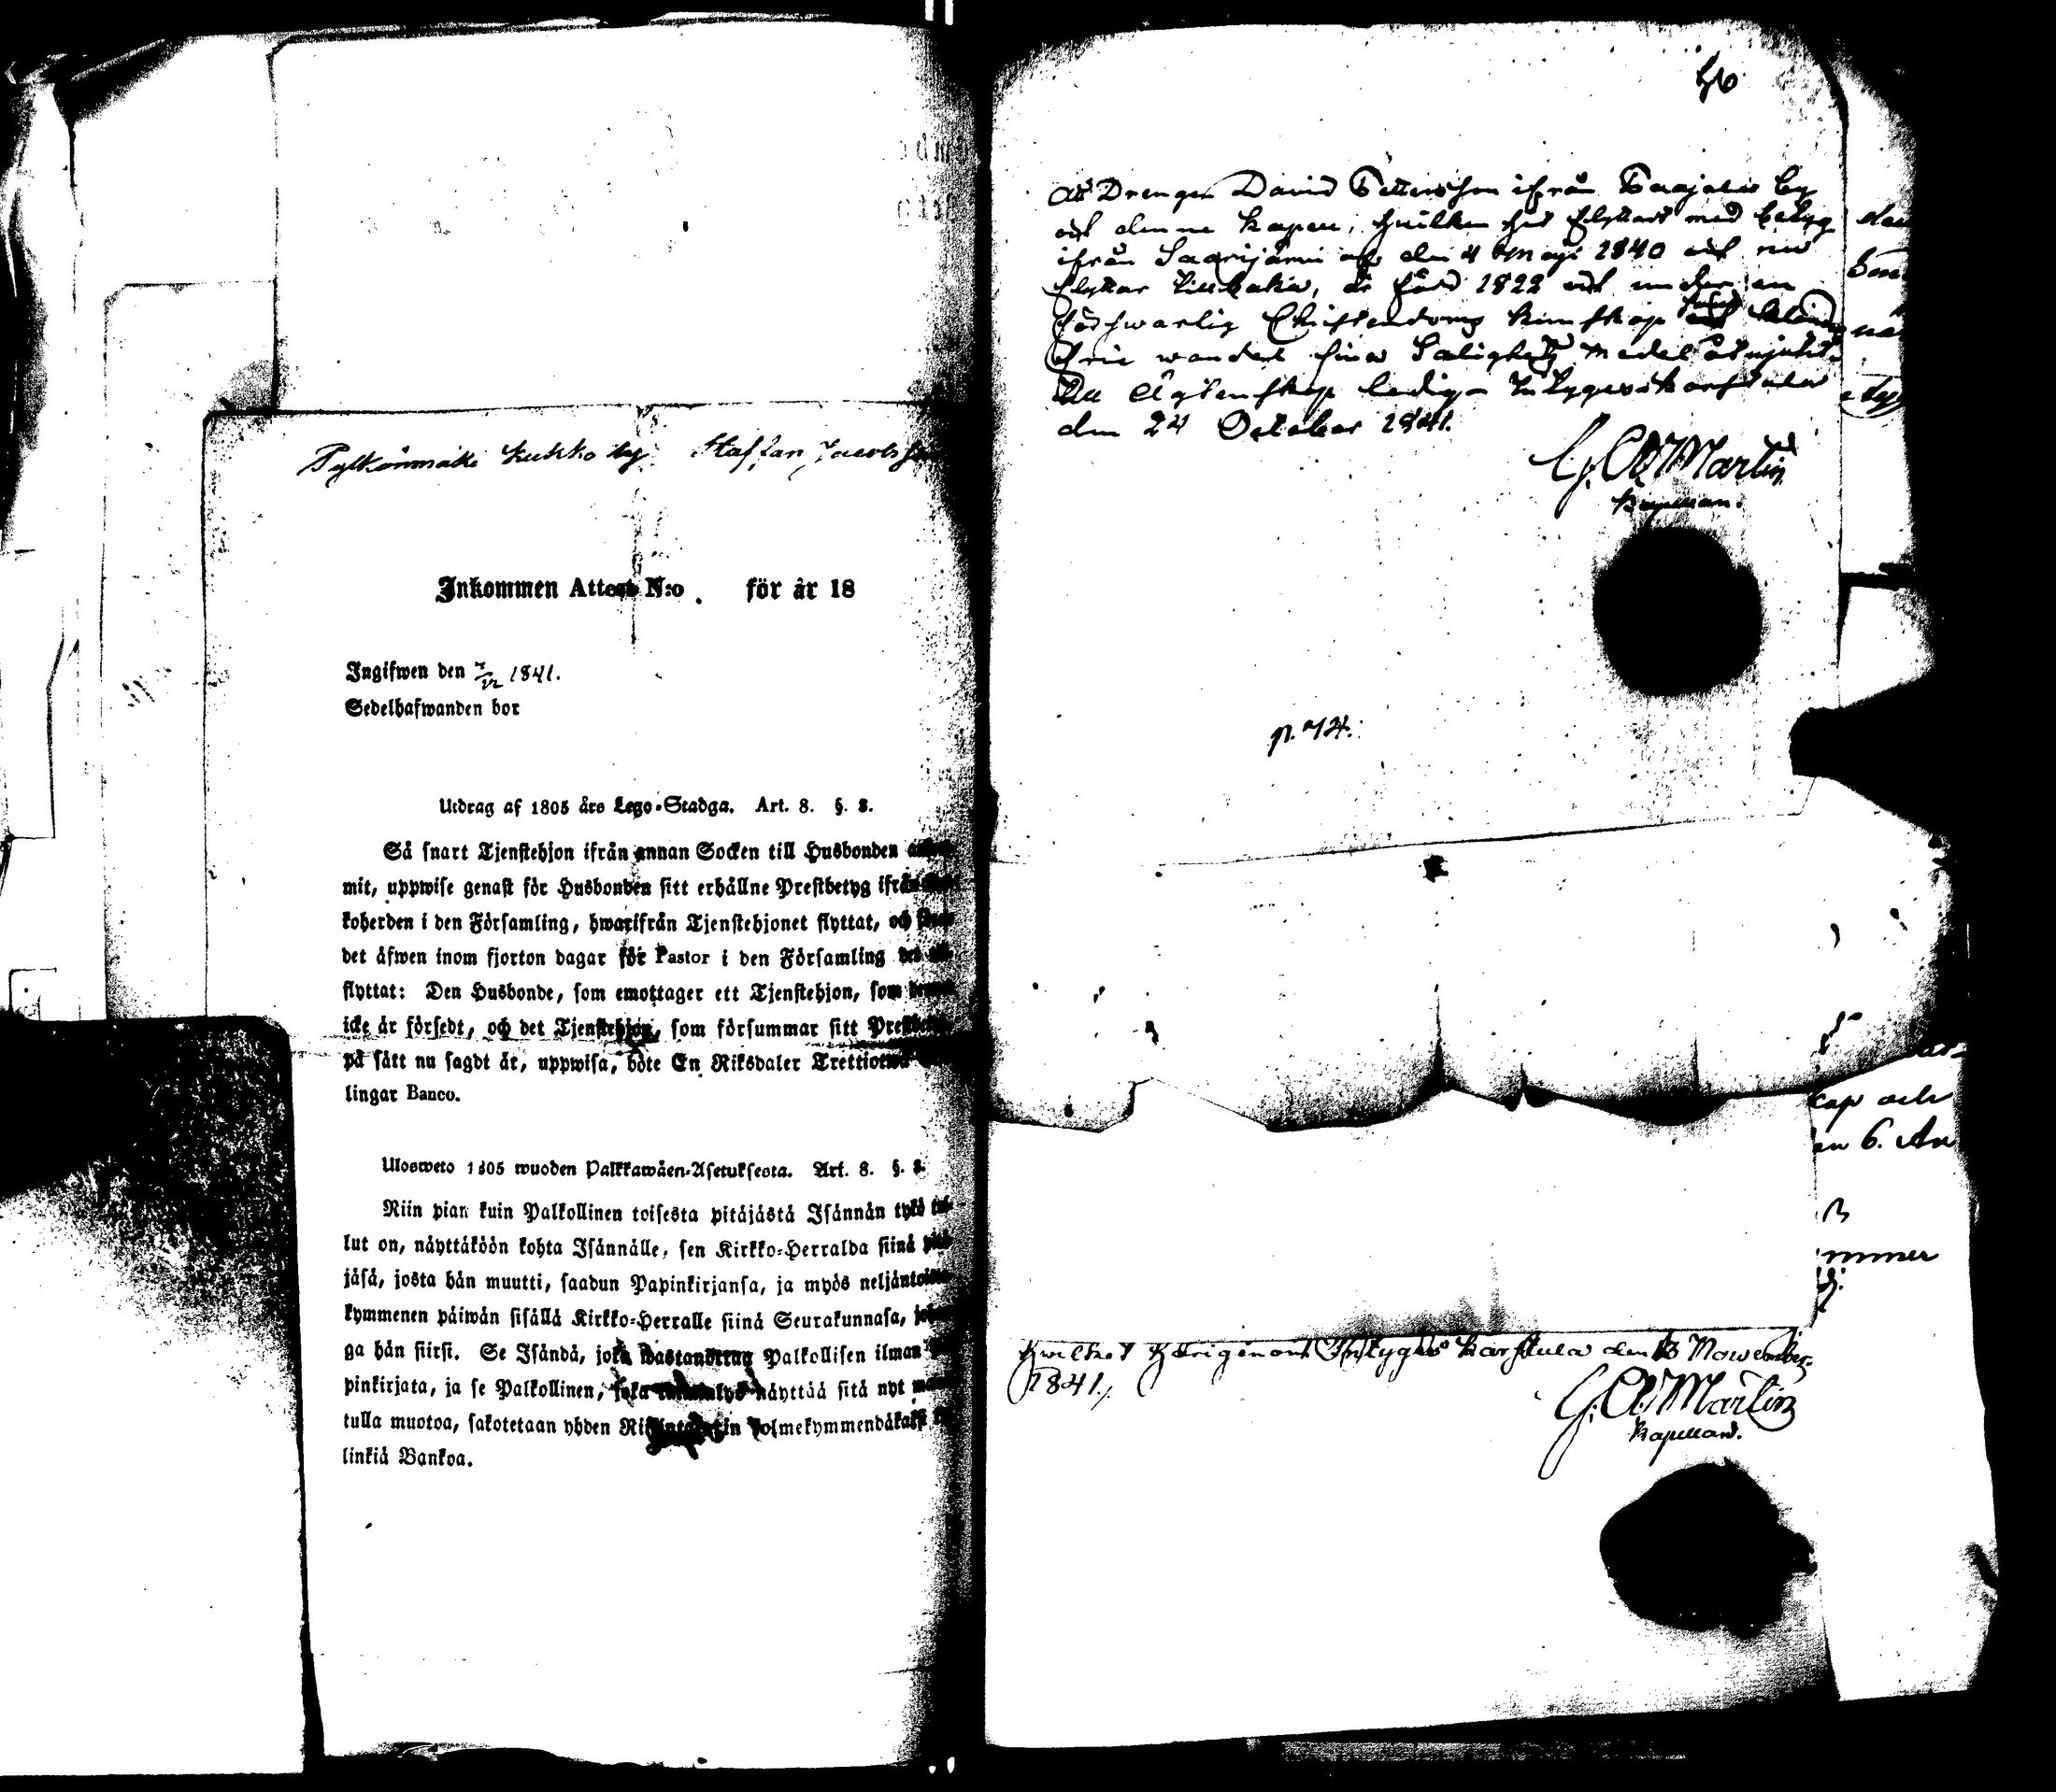 Pylkönmäki Kukko by. Staffan Jacobsson
Inkommen Attest N:o . för år 18
Ingifwen den 7/12 1841.
Sedelhafwanden bor
Utdrag af 1805 års Lego-Stadga. Art. 8. §. 8.
Så snart Tjenstehjon ifrån annan Socken till Husbonden
mit, uppwise genast för Husbonden sitt erhållne Prestbetyg ifrån
koherden i den Församling, hwarifrån Tjenstehjonet flyttat, och
det äfwen inom fjorton dagar för Pastor i den Församling det
flyttat: Den Husbonde, som emottager ett Tjenstehjon, som
icke är försedt, och det Tjenstehjon, som försummar sitt
på sätt nu sagdt är, uppwisa, böte En Riksdaler Trettiotwå
lingar Banco.
Ulosweto 1805 wuoden Palkkawäen-Asetuksesta. Art. 8. §. 8.
Niin pian kuin Palkollinen toisesta pitäjästä Isännän tykö
lut on, näyttäköön kohta Isännälle, sen Kirkko-Herralda siinä
jäsä, josta hän muutti, saadun Papinkirjansa, ja myös neljäntoista
kymmenen päiwän sisällä Kirkko-Herralle siinä Seurakunnasa,
ga hän siirsi. Se Isändä, joka wastanottaa Palkollisen ilman
pinkirjata, ja se Palkollinen, joka näyttää sitä nyt
tulla muotoa, sakotetaan yhden Riksintalarin kolmekymmendäkaksi
linkiä Bankoa.
46
att Drengen David Pettersson ifrån Paajala by
och denne kapell, hvilken hit flyttat med betyg
ifrån Saarijärvi af den 4 Maji 1840 och nu
flyttar tillbaka, är född 1822 och under en
försvarlig Christendoms kunskap
frie wandel sina Salighets medel åtnjutit
till Ägtenskap ledig - Intygas Karstula
den 24 October 1841.
C. A. Martin
Kapellan.
p. 74.
Hwilket Härigenom Intygas Karstula den 13 November
1841.
C. A. Martin
Kapellan.
kap och
en 6. An
mmer